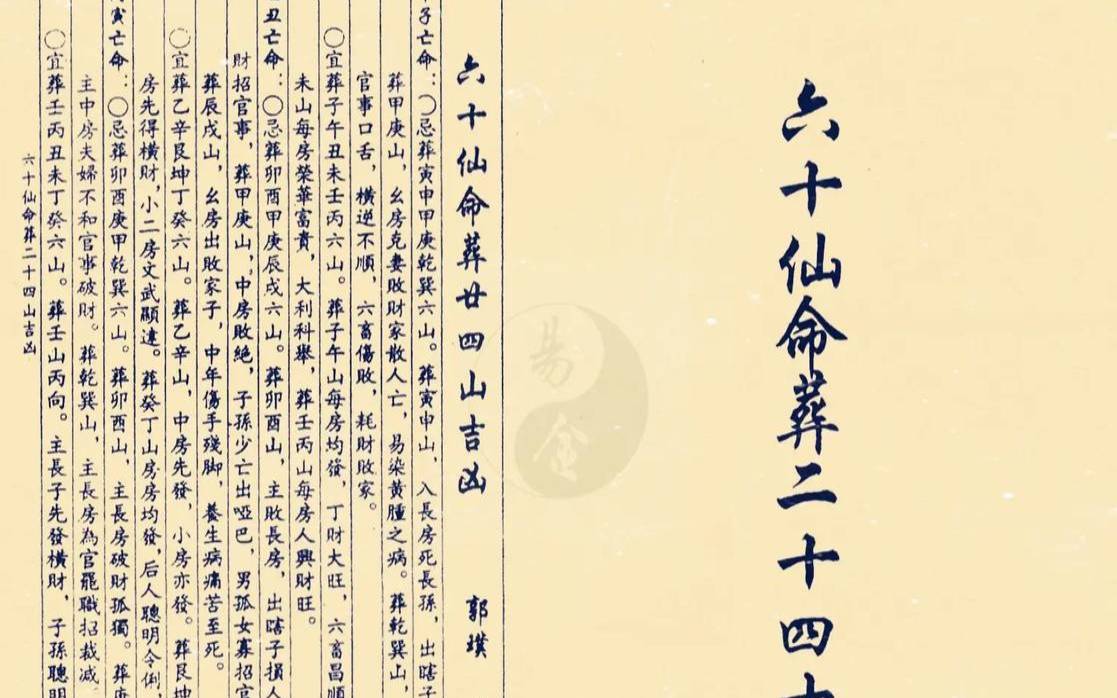 六十仙命葬二十四
六十仙命葬廿四山吉凶 郭璞
子亡命：〇忌葬寅申甲庚乾巽六山。葬寅申山，入長房死長孫，出瞎子
葬甲庚山，幺房克妻敗財家散人亡，易染黃腫之病。葬乾巽山，
官事口舌，橫逆不順，六畜傷敗，耗財敗家。
〇宜葬子午丑未壬丙六山。葬子午山每房均發，丁財大旺，六畜昌順
未山每房榮華富貴，大利科舉，葬壬丙山每房人興財旺。
丑亡命：〇忌葬卯酉甲庚辰戌六山。葬卯酉山，主敗長房，出瞎子損人
財招官事，葬甲庚山，中房敗絕，子孫少亡出啞巴，男孤女寡招官
葬辰戌山，幺房出敗家子，中年傷手殘脚，養生病痛苦至死。
〇宜葬乙辛艮坤丁癸六山。葬乙辛山，中房先發，小房亦發。葬艮坤
房先得橫財，小二房文武顯達。葬癸丁山房房均發，后人聰明令俐，
寅亡命：〇忌葬卯酉庚甲乾巽六山。葬卯酉山，主長房破財孤獨。葬庚
主中房夫婦不和官事破財。葬乾巽山，主長房為官罷職招裁減
〇宜葬壬丙丑未丁癸六山。葬壬山丙向。主長子先發橫財，子孫聰明
六十仙命葬二十四山吉凶
易金